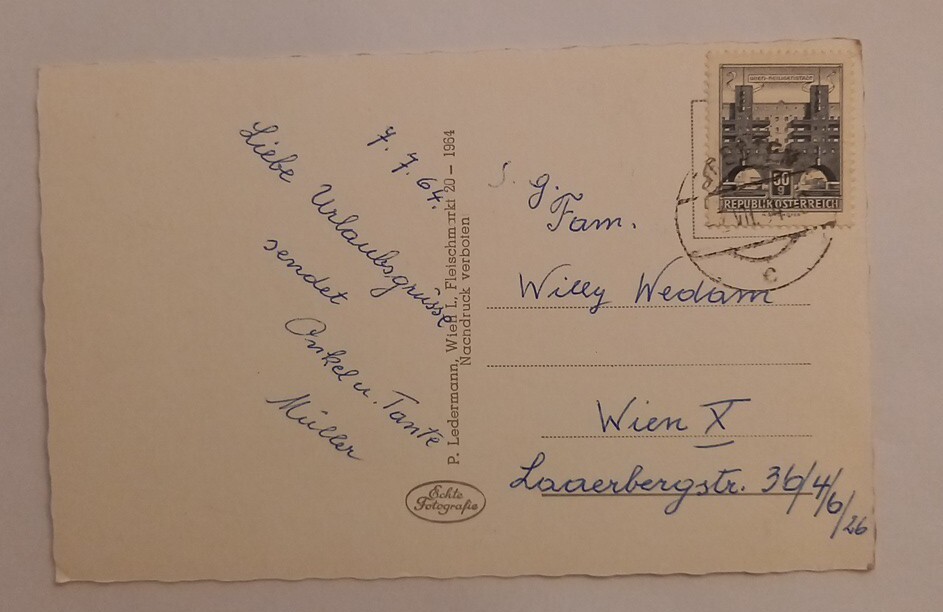 7. 7. 64.
Liebe Urlaubsgrüsse
sendet
Onkel u. Tante
Müller
P. Ledermann, Wien I., Fleischmarkt 20 – 1964
Nachdruck verboten
Echte
Fotografie
S. g.
Fam.
Willy Wedam
Wien X
Laaerbergstr. 36/4/6/26
50
g
REPUBLIK ÖSTERREICH
c